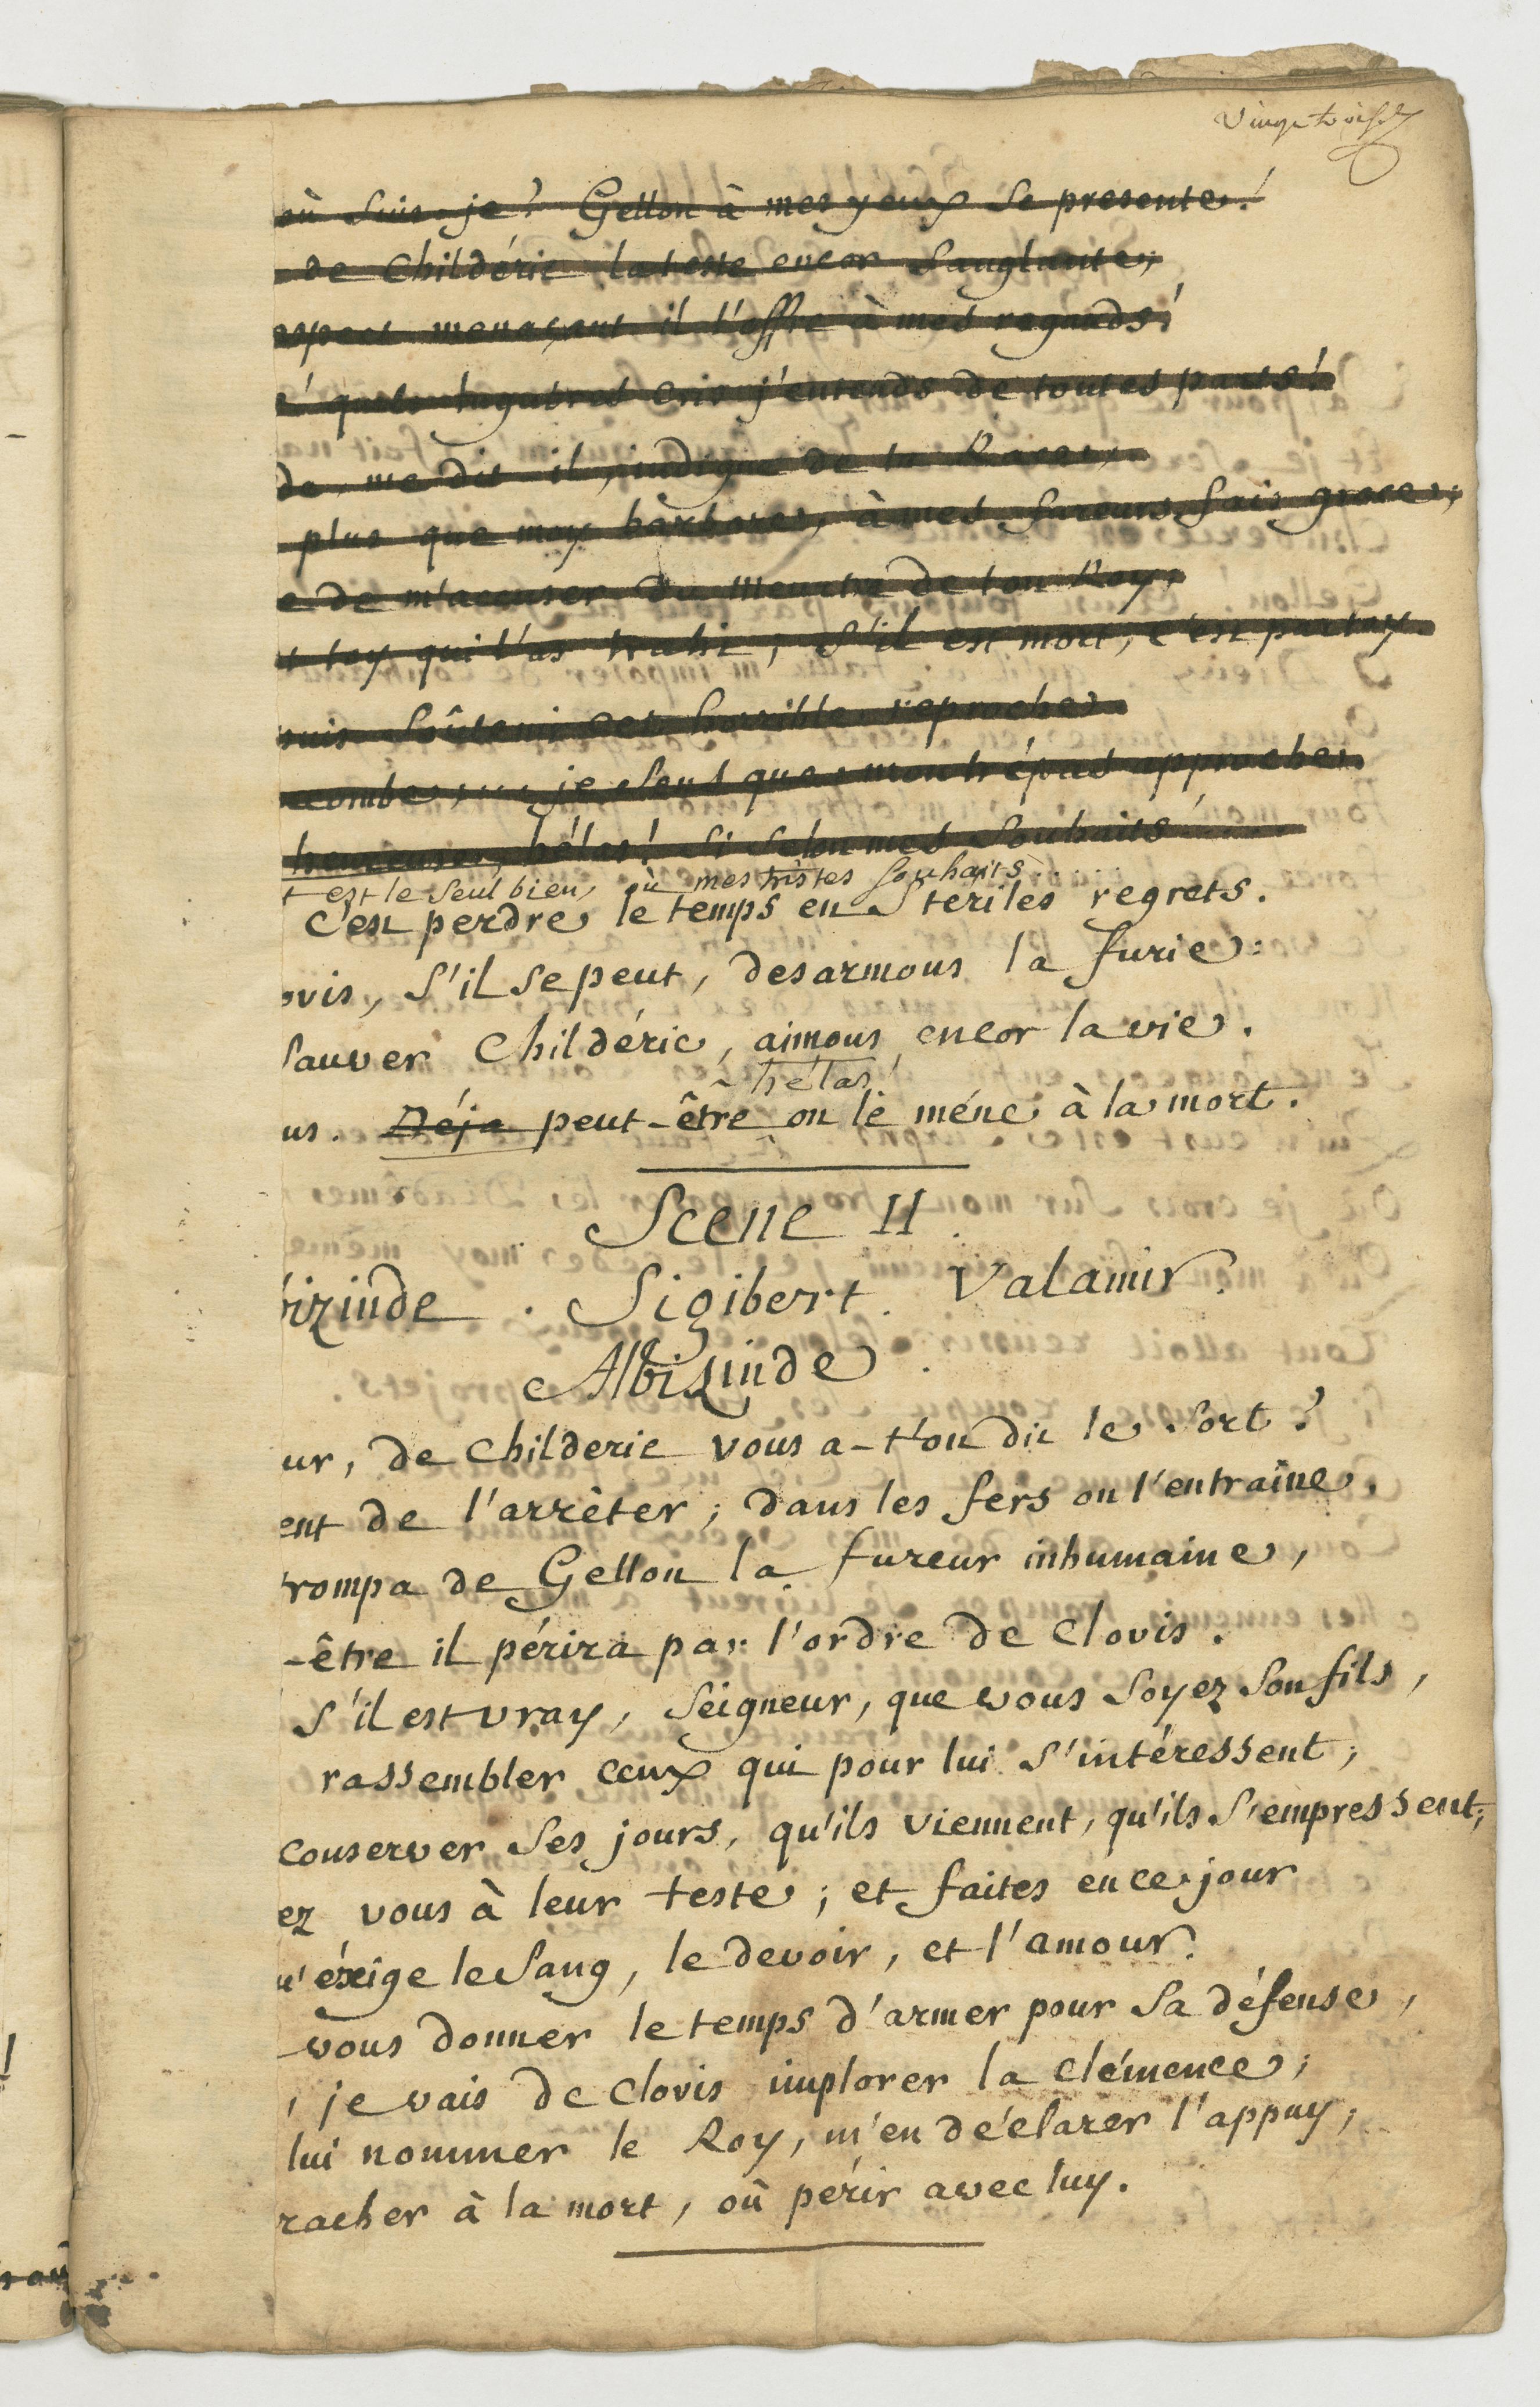 Vingt trois
où suis-je? Gellon à mes yeux se presente!
de Childéric la teste encor sanglante;
aspect menaçant il l'offre à mes regards!
quels lugubres cris j'entends de toutes parts!
de, me dit-il, indigne de ta Race,
plus que moy barbare, à mes fureurs fais grace;
e de m'accuser du meurtre de ton Roy;
toy qui l'as trahi; S'il est mort, c'est par toy.
puis soûtenir cet horrible reproche.
ccombe,... je sens que mon trépas approche.
heureuse, hélas! si selon mes souhaits.....
t est le seul bien, où mes tristes souhaits....
C'est perdre le temps en steriles regrets.
ovis, s'il se peut, desarmons la furie:
sauver Childéric, aimons encor la vie.
hélas!
us. Déja peut-être on le méne à la mort.
Scene II.
bizinde. Sigibert. Valamir.
Albizinde.
ur, de Childeric vous a-t'on dit le sort?
ent de l'arrêter; dans les fers on l'entraîne.
rompa de Gellon la fureur inhumaine,
-être il périra par l'ordre de Clovis.
s'il est vray, Seigneur, que vous soyez son fils,
rassembler ceux qui pour lui s'intéressent;
conserver ses jours, qu'ils viennent, qu'ils s'empressent;
ez vous à leur teste; et faites en ce jour
u'éxige le sang, le devoir, et l'amour.
vous donner le temps d'armer pour sa défense,
, je vais de Clovis implorer la clémence;
lui nommer le Roy, m'en déclarer l'appuy;
racher à la mort, où périr avec luy.